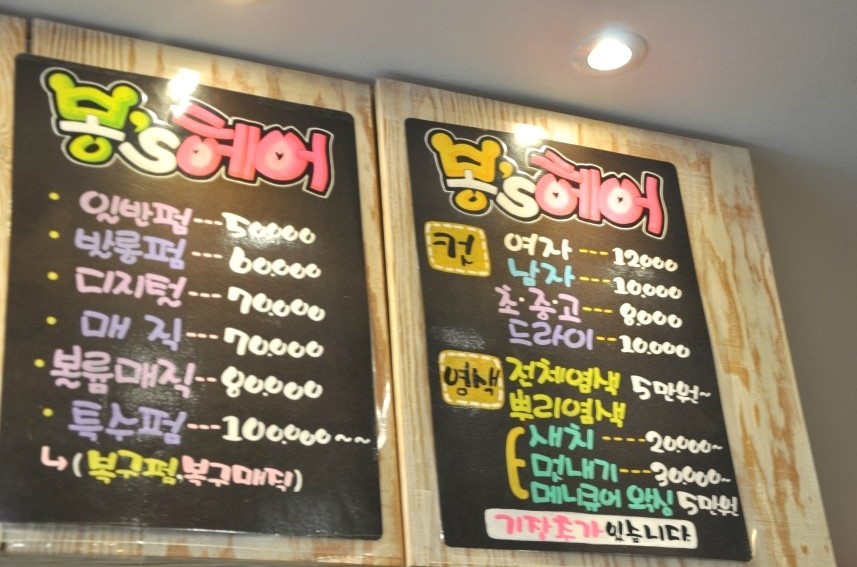 봉's헤어
· 일반펌---50.000
· 밧롱펌---60.000
· 디지털---70.000
· 매직---70.000
· 볼륨매직--80.000
· 특수펌---100.000~~
↳(복구펌,복구매직)
봉's헤어
컷 여자---12.000
남자---10.000
초·중·고---8.000
드라이--10.000
염색 전체염색 5만원~
뿌리염색
새치----20.000~
멋내기---30.000~
메니큐어 왁싱 5만원
기장추가있습니다